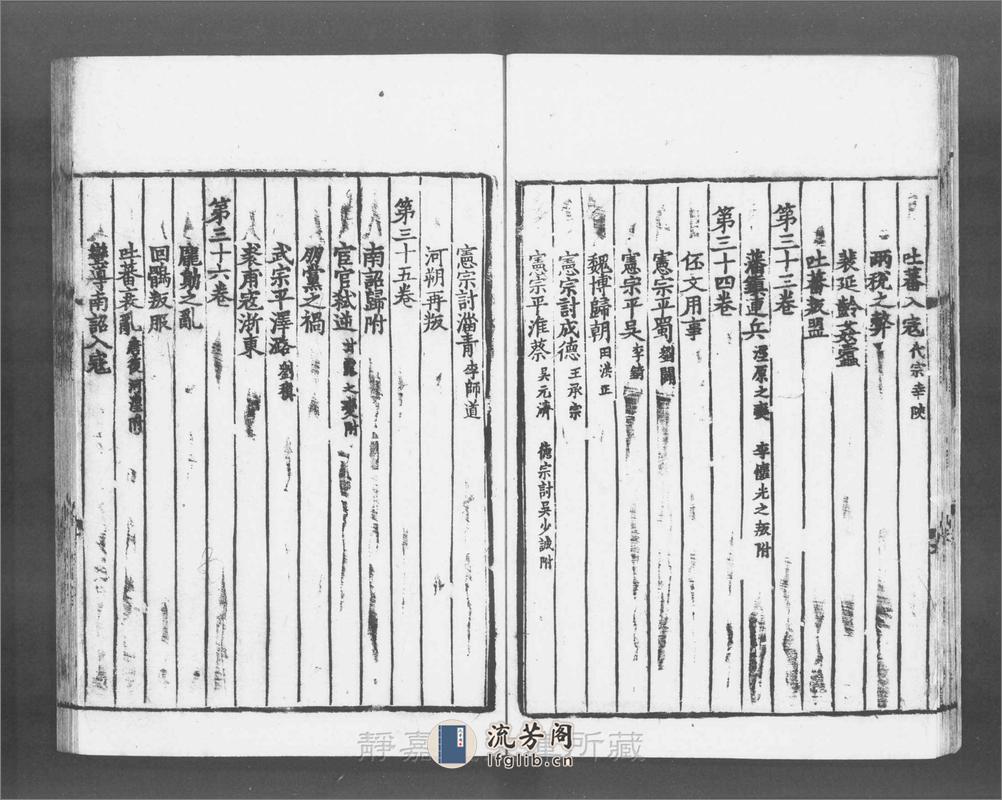 吐蕃入寇 代宗幸陜
兩稅之弊
裴延齡姦蠹
吐蕃叛盟
第三十三卷
藩鎮連兵 涇原之變 李懷光之叛附
第三十四卷
伾文用事
憲宗平蜀 劉闢
憲宗平吳 李錡
魏博歸朝 田洪正
憲宗討成德 王承宗
憲宗平淮蔡 吳元濟 德宗討吳少誠附
憲宗討淄青 李師道
河朔再叛
第三十五卷
南詔歸附
宦官弒逆 甘露之變附
朋黨之禍
武宗平澤潞 劉稹
裘甫寇浙東
第三十六卷
龐勛之亂
回鶻叛服
吐蕃衰亂 復河湟附
蠻導南詔入寇
靜嘉 所藏
流芳阁
lfglib.cn